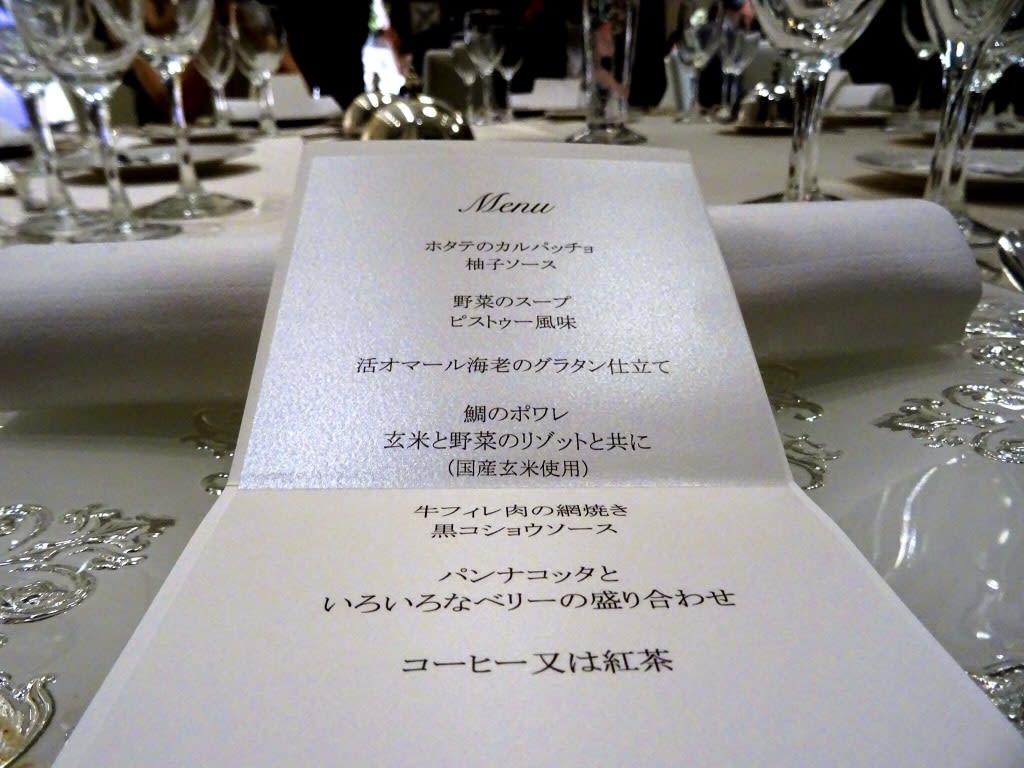 Menu
ホタテのカルパッチョ
柚子ソース
野菜のスープ
ピストゥー風味
活オマール海老のグラタン仕立て
鯛のポワレ
玄米と野菜のリゾットと共に
(国産玄米使用)
牛フィレ肉の網焼き
黒コショウソース
パンナコッタと
いろいろなベリーの盛り合わせ
コーヒー又は紅茶